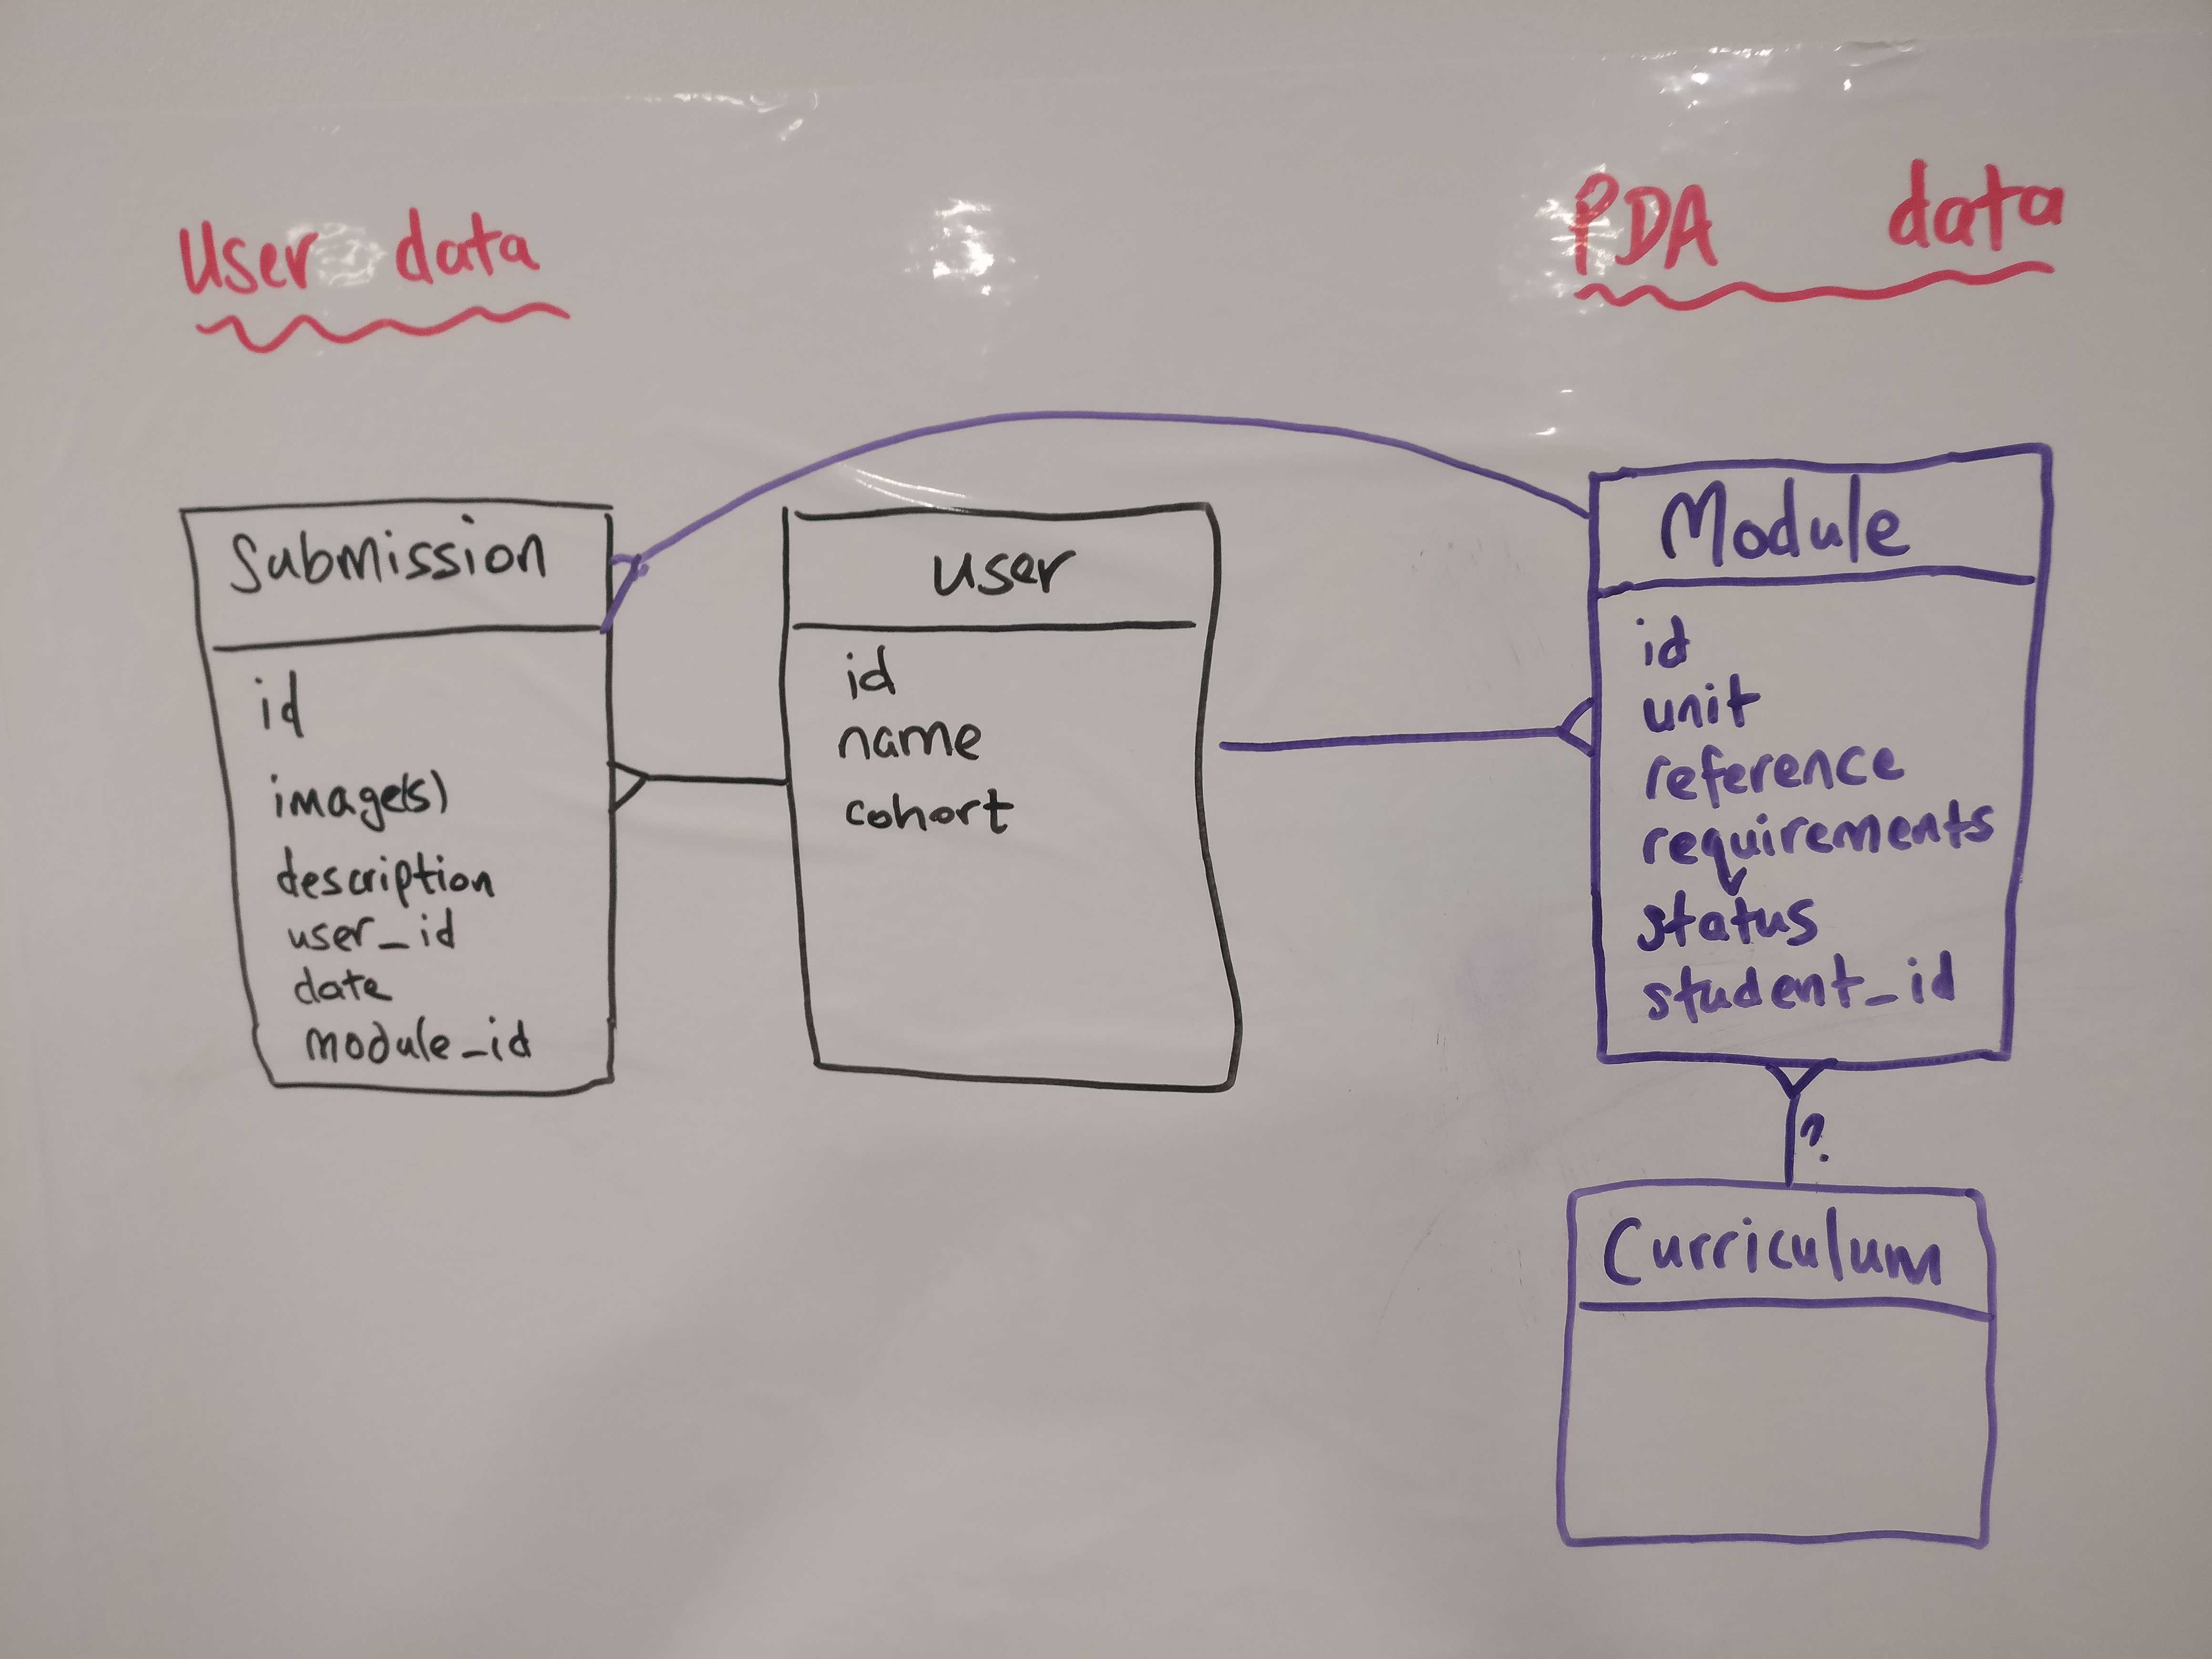 User data
PDA data
Submission
id
image(s)
description
user_id
date
module_id
user
id
name
cohort
Module
id
unit
reference
requirements
status
student_id
?
Curriculum